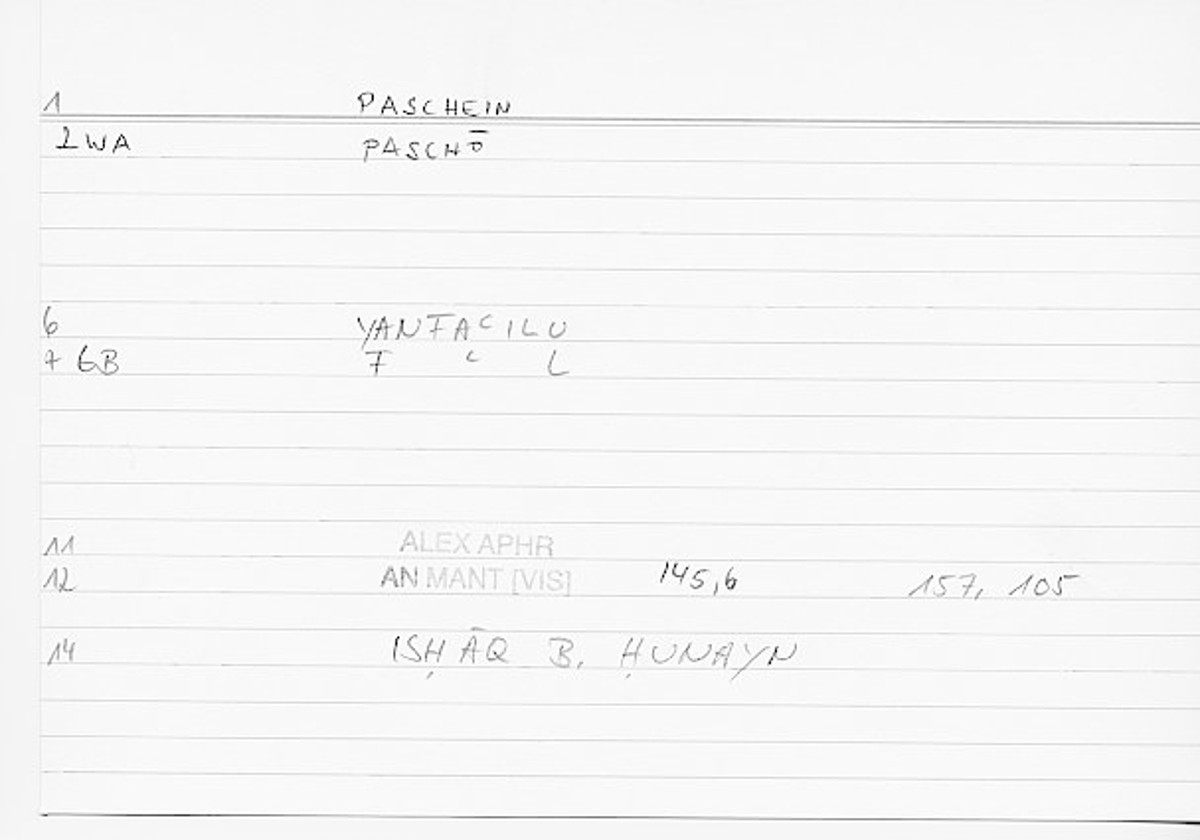 1 PASCHEIN
2WA PASCHŌ
6 YANFAʿILU
7 GB F ʿ L
11 ALEX APHR
12 AN MANT [VIS] 145,6 157, 105
14 ISḤĀQ B. ḤUNAYN